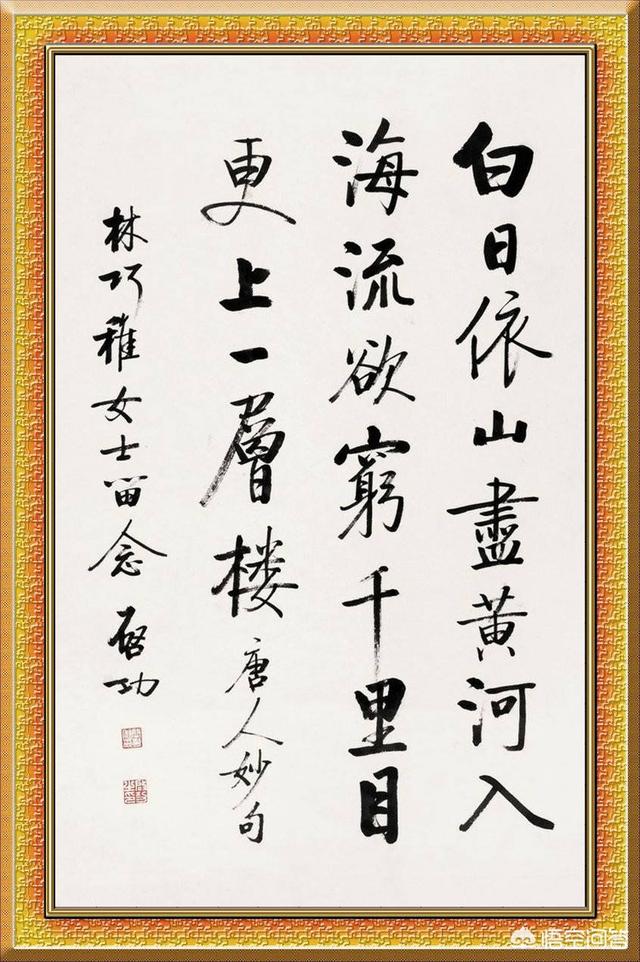 白日依山盡黄河入
海流欲窮千里目
更上一層楼唐人妙句
林巧稚女士留念启功
悟空问答